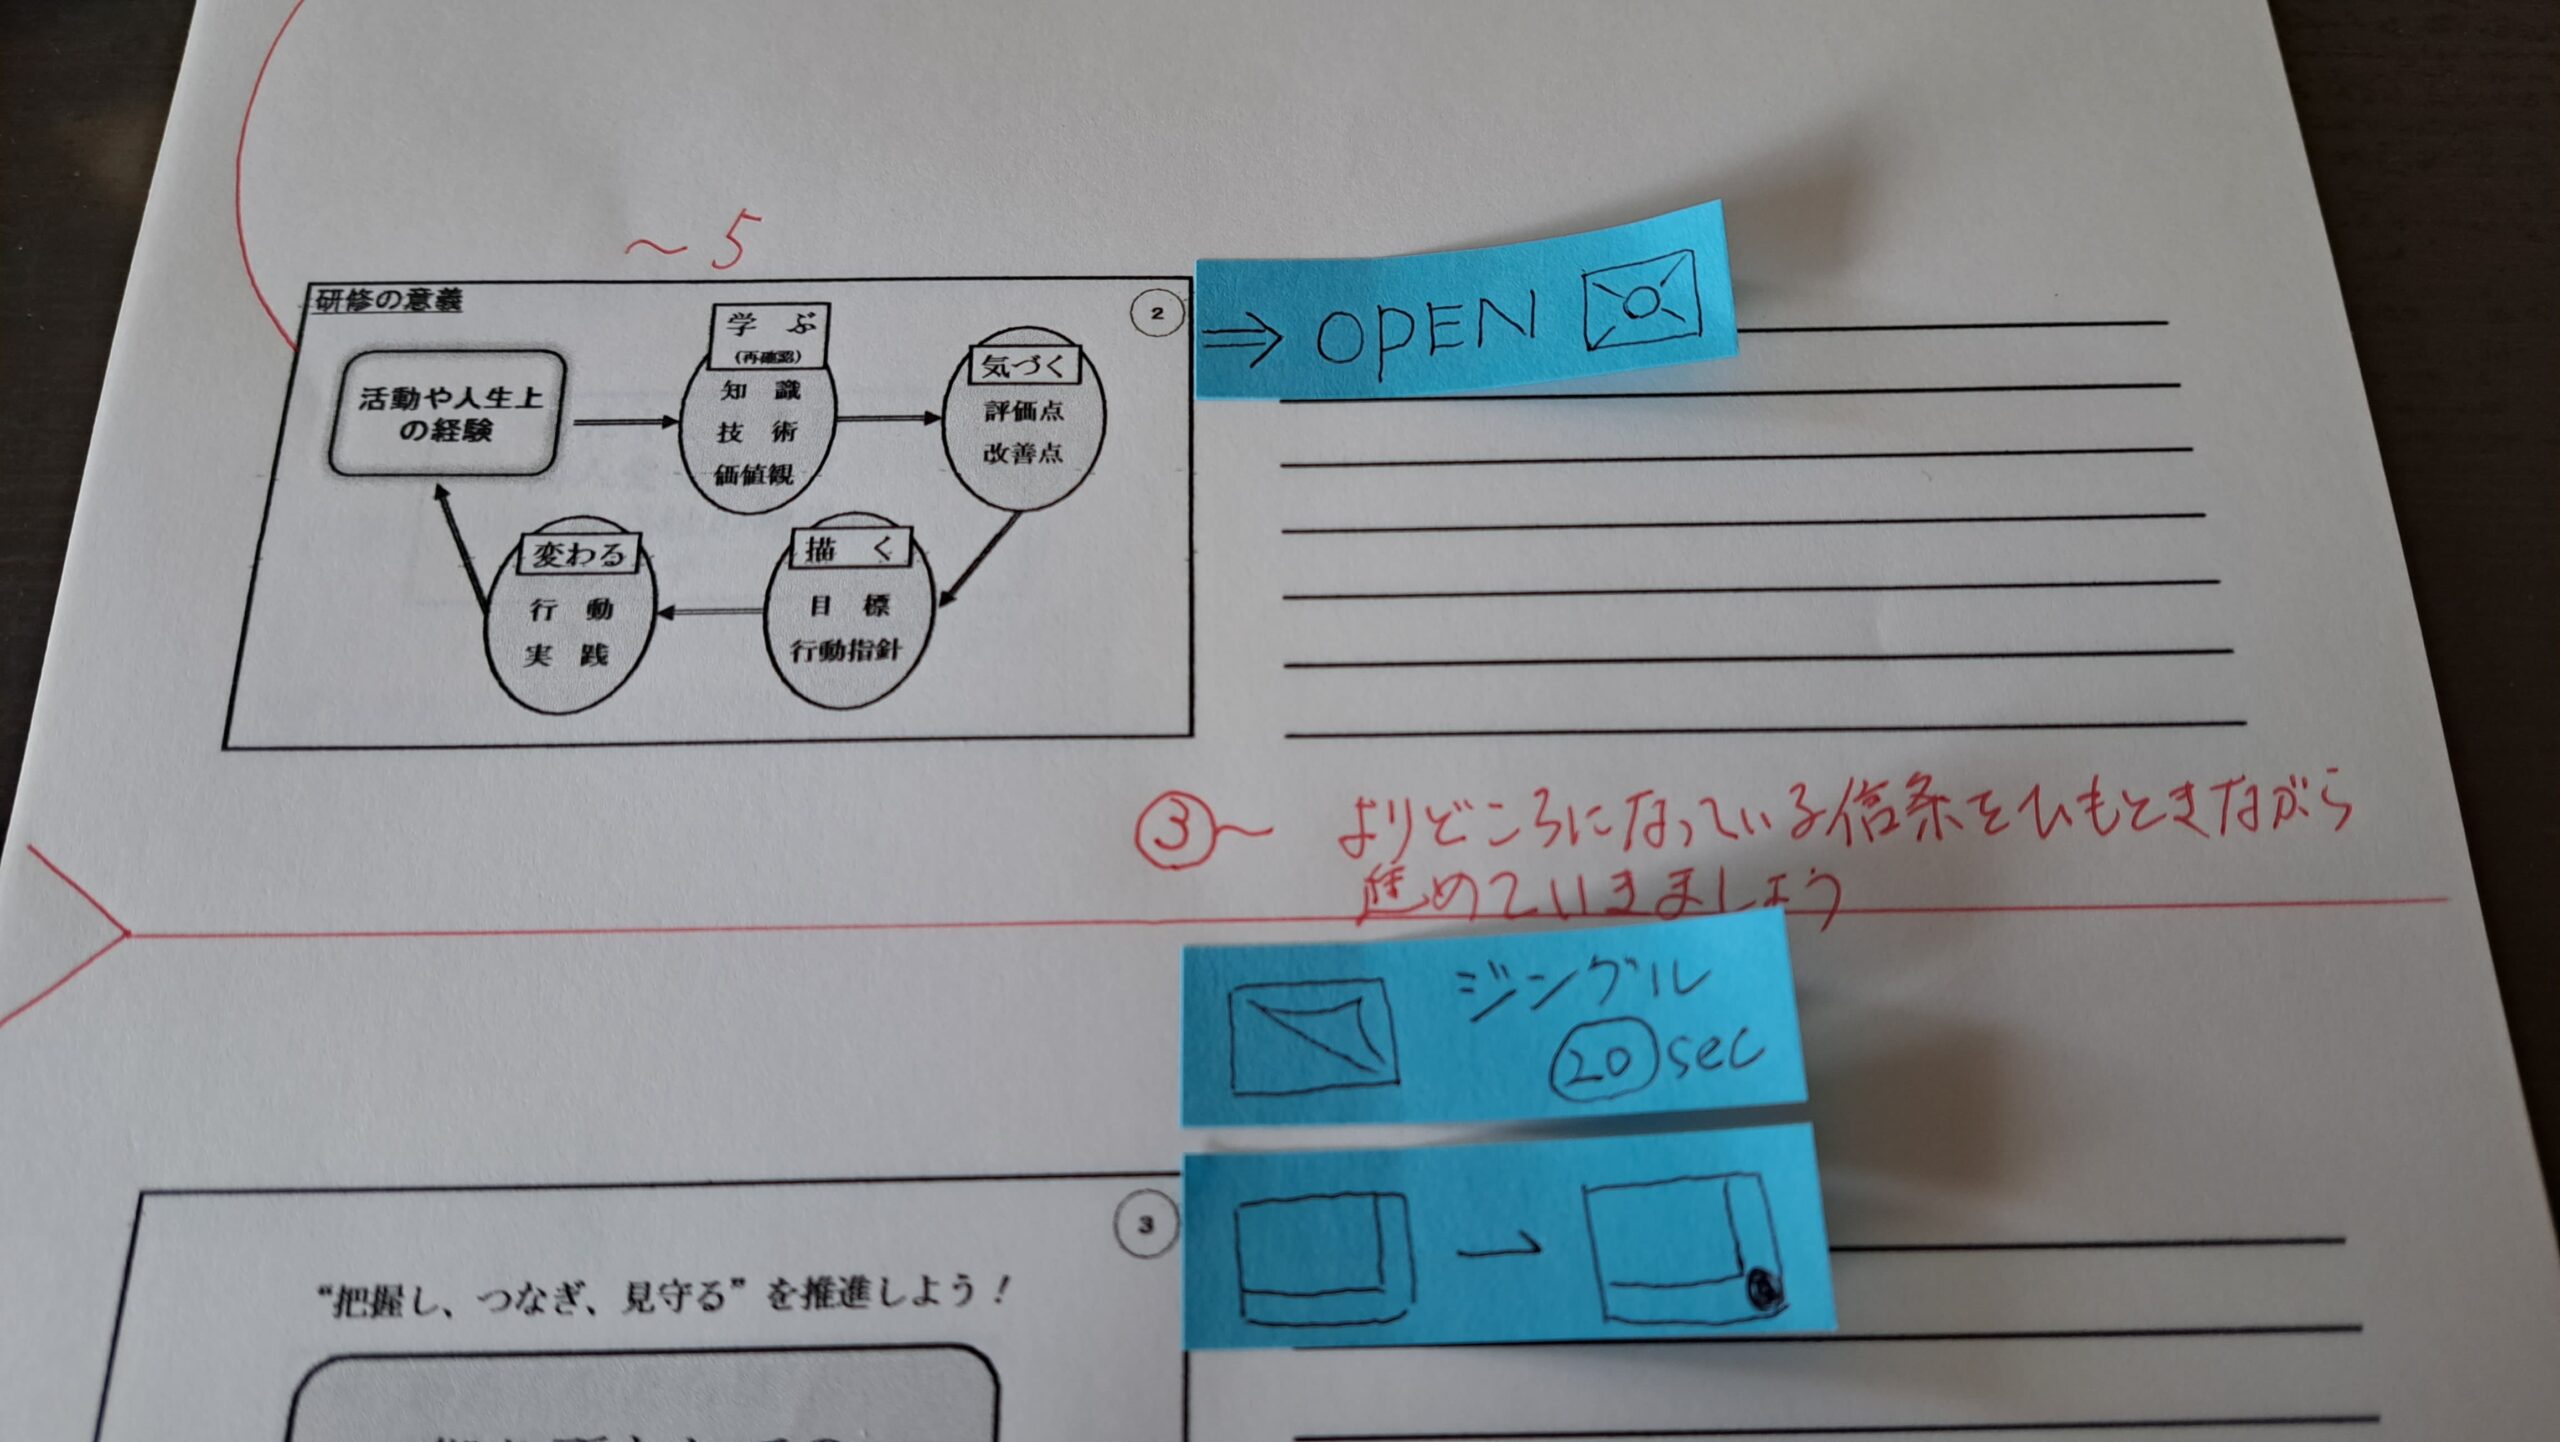 ～5
研修の意義
2
活動や人生上
の経験
学 ぶ
(再確認)
知 識
技 術
価値観
気づく
評価点
改善点
変わる
行 動
実 践
描 く
目 標
行動指針
⇒ OPEN
③～ よりどころになっている信条をひもときながら
進めていきましょう
ジングル
20 sec
3
“把握し、つなぎ、見守る”を推進しよう！